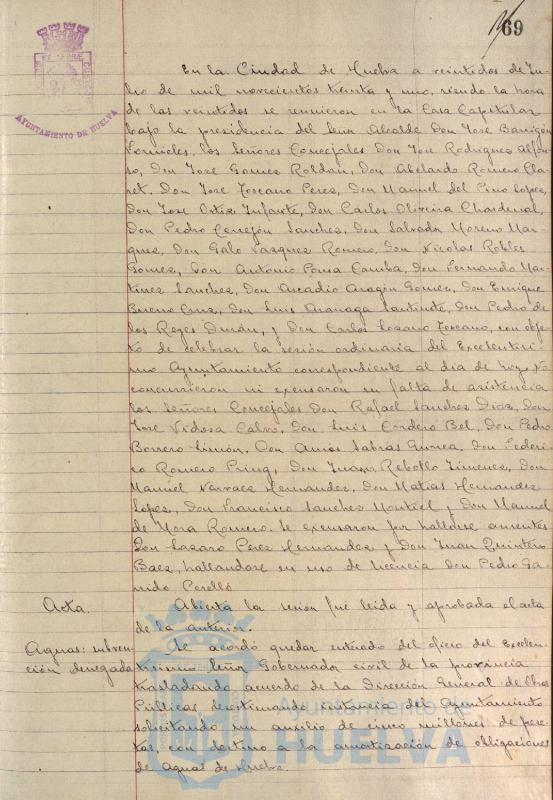 69
AYUNTAMIENTO DE HUELVA
En la Ciudad de Huelva a veintidos de Ju-
lio de mil novecientos treinta y uno, siendo la hora
de las veintidos se reunieron en la Casa Capitular
bajo la presidencia del Señor Alcalde Don José Barrigón
Fornieles, los Señores Concejales Don José Rodriguez Alfon-
so, Don José Gomez Roldan, Don Abelardo Romero Cla-
ret, Don José Toscano Perez, Don Manuel del Pino Lopez,
Don José Ortiz Infante, Don Carlos Oliveira Chardenal,
Don Pedro Cerrejón Sanchez, Don Salvador Moreno Mar-
quez, Don Galo Vazquez Romero, Don Nicolas Robles
Gomez, Don Antonio Pousa Camba, Don Fernando Mar-
tinez Sanchez, Don Arcadio Aragón Gomez, Don Enrique
Bueno Cruz, Don Luis Aranaga Santinete, Don Pedro de
los Reyes Durán, y Don Carlos Lozano Toscano, con obje-
to de celebrar la sesión ordinaria del Excelentisi-
mo Ayuntamiento correspondiente al dia de hoy. No
concurrieron ni excusaron su falta de asistencia
los Señores Concejales Don Rafael Sanchez Diaz, Don
José Vidosa Calvo, Don Luis Cordero Bel, Don Pedro
Borrero Limón, Don Amos Sabras Gurrea, Don Federi-
co Romero Prieng, Don Juan Rebollo Jimenez, Don
Manuel Narvaez Hernandez, Don Matias Hernandez
López, Don Francisco Sanchez Montiel y Don Manuel
de Mora Romero. Se excusaron por hallarse ausentes
Don Lazaro Perez Hernandez y Don Juan Quintero
Baez, hallandose en uso de licencia Don Pedro Ga-
rrido Perelló
Acta. Abierta la sesión fué leida y aprobada el acta
de la anterior.
Aguas: subven- Se acordó quedar enterado del oficio del Excelen-
ción denegada tisimo Señor Gobernador civil de la provincia
trasladando acuerdo de la Dirección General de Obras
Públicas desestimando instancia del Ayuntamiento
solicitando un auxilio de cinco millones de pese-
tas, con destino a la amortización de obligaciones
de Aguas de Huelva.
Ayuntamiento de
HUELVA